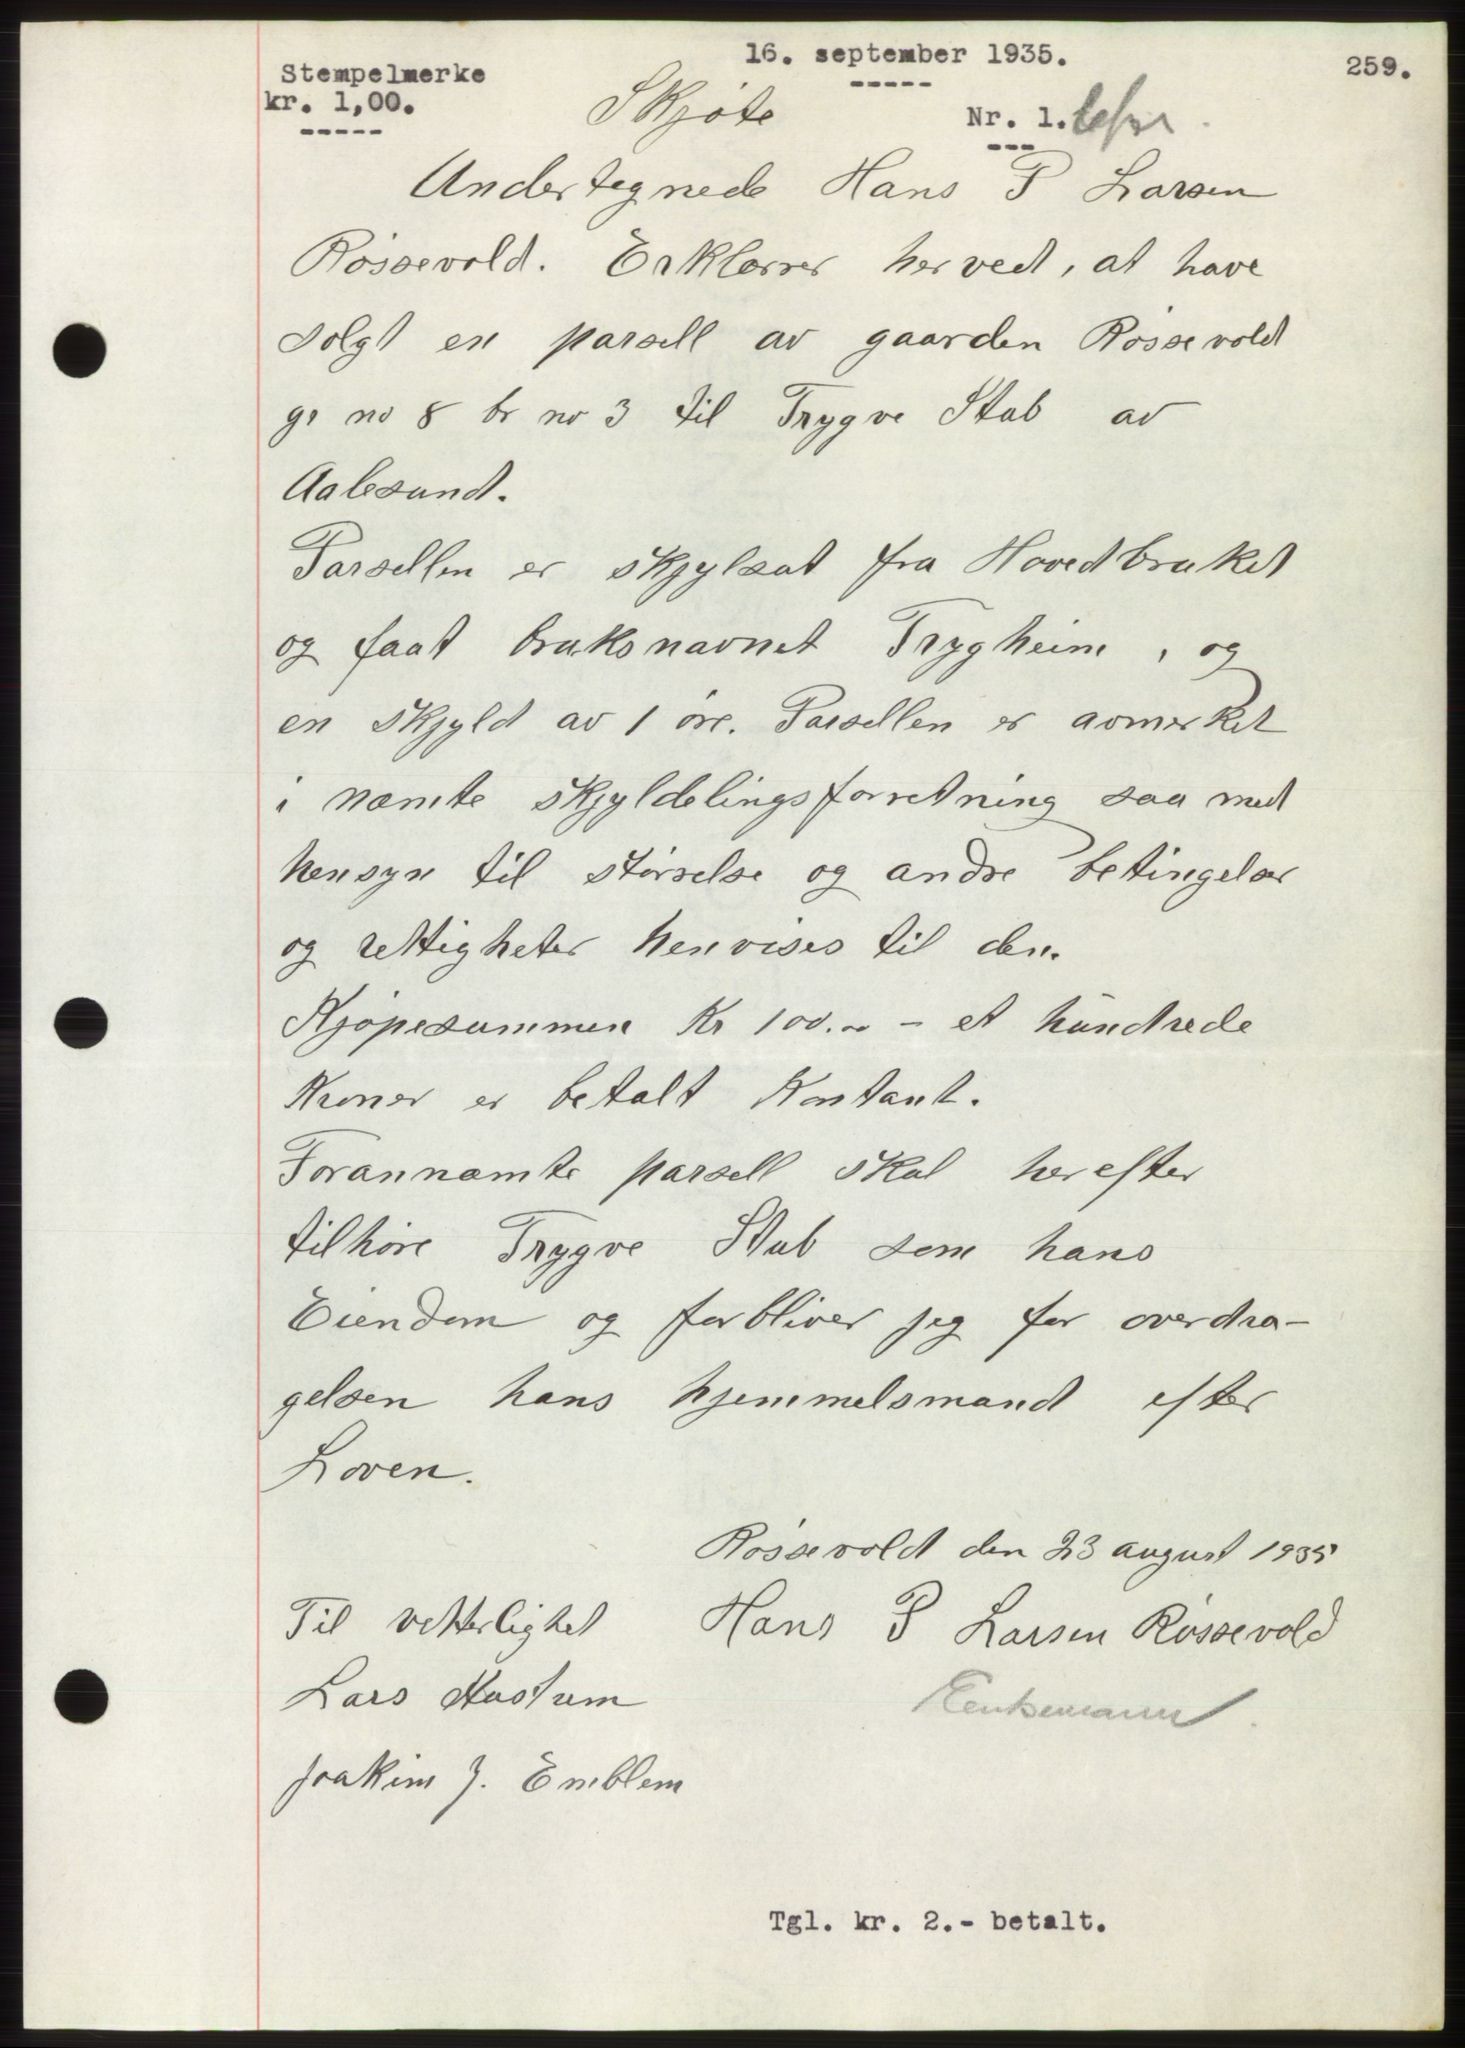 16. september 1935.
259.
Stempelmerke
kr. 1,00.
Skjøte
Nr. 1.
Undertegnede Hans P Larsen
Røssevold. Erklærer herved, at have
solgt en parsell av gaarden Røssevold
gr no 8 br no 3 til Trygve Stub av
Aalesund.
Parsellen er skjylsat fra Hovedbruket
og faat bruksnavnet Trygheim, og
en skjyld av 1 øre. Parsellen er avmerket
i næmte skjyldelingsforretning saa med
hensyn til størrelse og andre betingelser
og rettigheter henvises til den.
Kjøpesummen Kr 100.00 - et hundrede
Kroner er betalt Kontant.
Forannæmte parsell skal herefter
tilhøre Trygve Stub som hans
Eiendom og forbliver jeg for overdra-
gelsen hans hjemmelsmand efter
Loven.
Røssevold den 23 august 1935
Til vitterlighet Hans P Larsen Røssevold
Lars
Joakim J. Emblem
Tgl. kr. 2.- betalt.